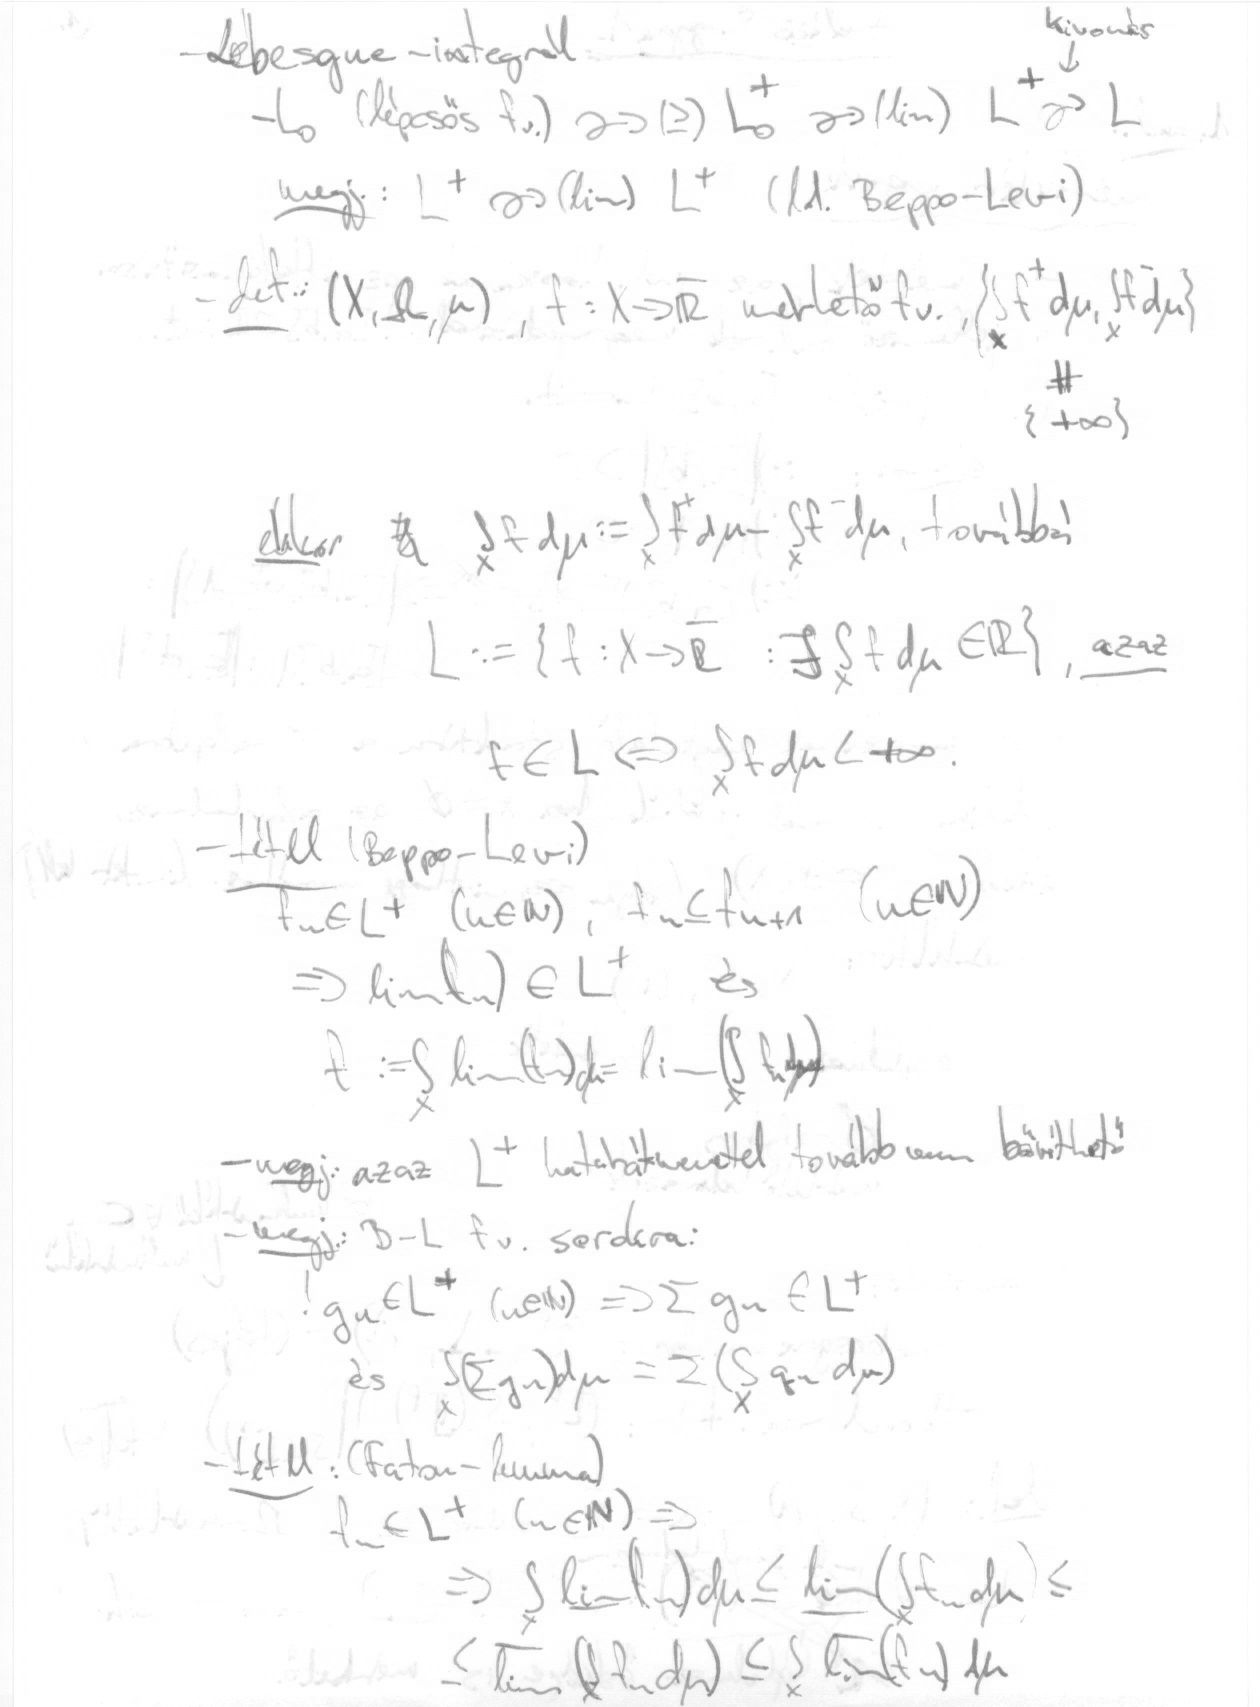 - Lebesgue-integrál
kivonás
↓
- L₀ (lépcsős fv.) ⤳ (≥) L₀⁺ ⤳ (lim) L⁺ ⤳ L
megj.: L⁺ ⤳ (lim) L⁺ (ld. Beppo-Levi)
- def.: (X, Ω, μ), f : X → ℝ̅ mérhető fv., {∫_X f⁺ dμ, ∫_X f⁻ dμ}
≠
{+∞}
ekkor ∫_X f dμ := ∫_X f⁺ dμ - ∫_X f⁻ dμ, továbbá
L := {f : X → ℝ̅ : ∃ ∫_X f dμ ∈ ℝ}, azaz
f ∈ L ⇔ ∫_X f dμ < +∞.
- tétel (Beppo-Levi)
fₙ ∈ L⁺ (n∈ℕ), fₙ ≤ fₙ₊₁ (n∈ℕ)
⇒ lim(fₙ) ∈ L⁺ és
f := ∫_X lim(fₙ) dμ = lim(∫_X fₙ dμ)
- megj.: azaz L⁺ határátmenettel tovább nem bővíthető
- megj.: B-L fv. sorokra:
! gₙ ∈ L⁺ (n∈ℕ) ⇒ Σ gₙ ∈ L⁺
és ∫_X (Σ gₙ) dμ = Σ (∫_X gₙ dμ)
- tétel: (Fatou-lemma)
fₙ ∈ L⁺ (n∈ℕ) ⇒
⇒ ∫_X l̲i̲m̲(fₙ) dμ ≤ l̲i̲m̲(∫_X fₙ dμ) ≤
≤ l̅i̅m̅(∫_X fₙ dμ) ≤ ∫_X l̅i̅m̅(fₙ) dμ